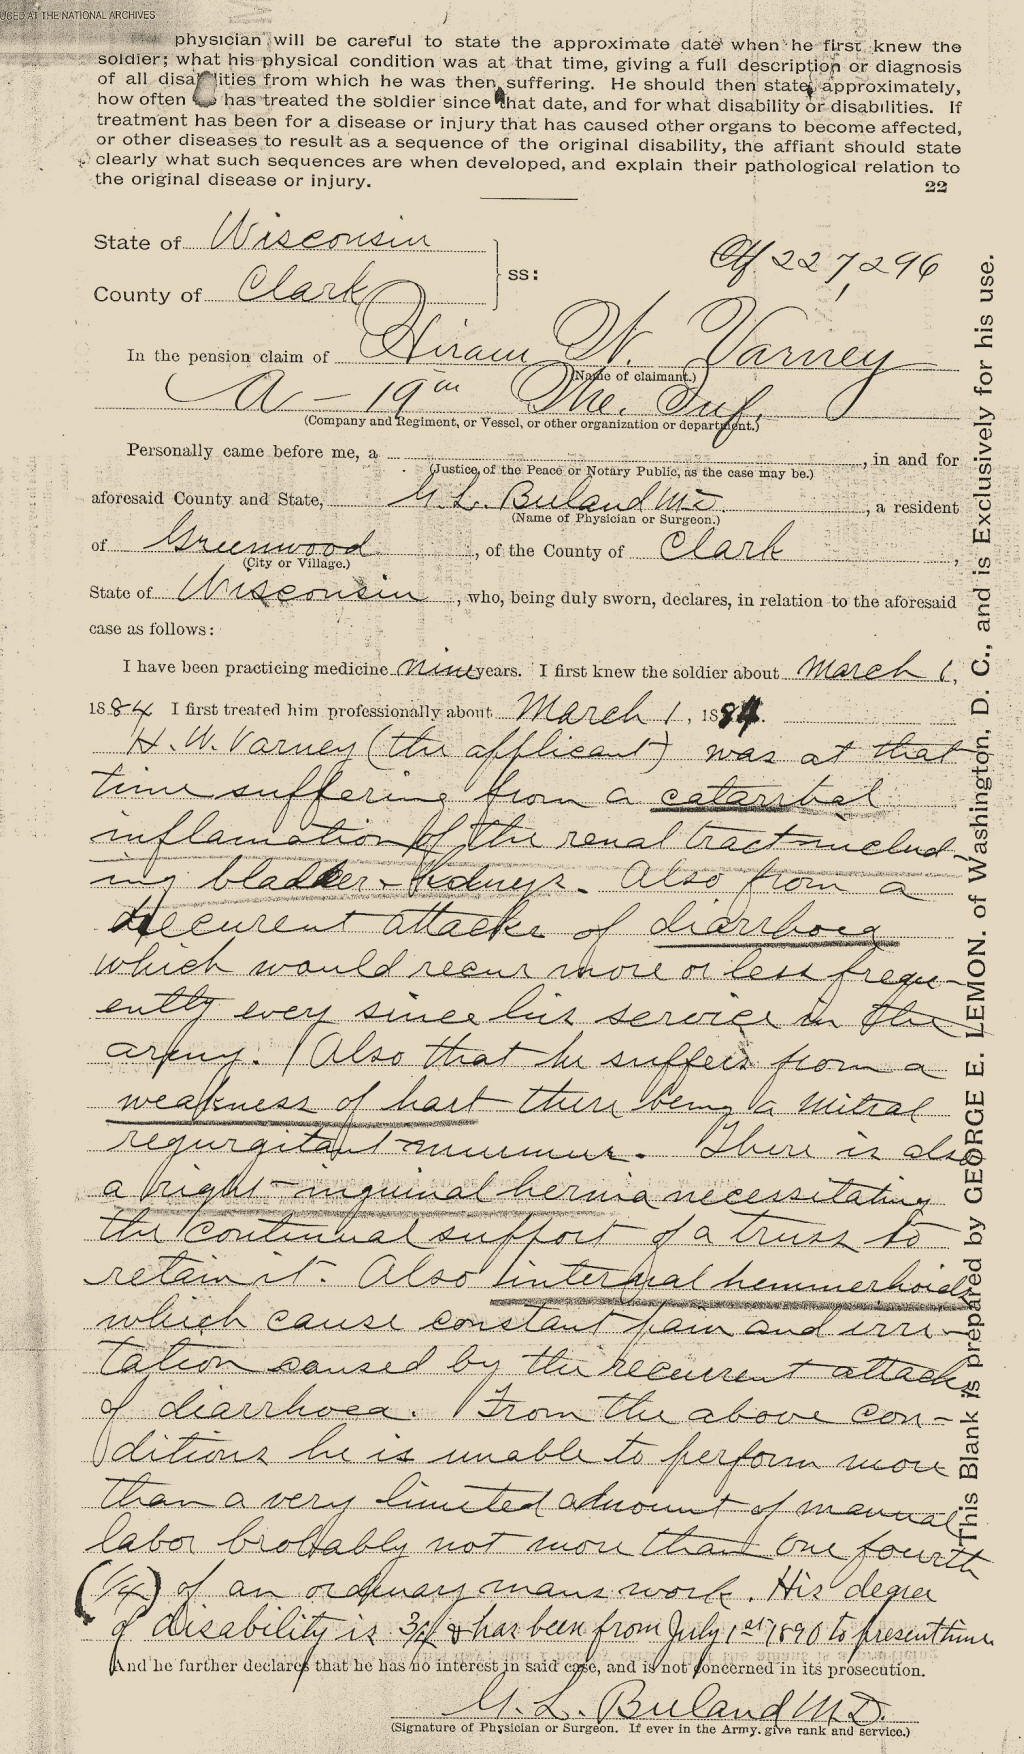 AT THE NATIONAL ARCHIVES
physician will be careful to state the approximate date when he first knew the
soldier; what his physical condition was at that time, giving a full description or diagnosis
of all disabilities from which he was then suffering. He should then state, approximately,
how often he has treated the soldier since that date, and for what disability or disabilities. If
treatment has been for a disease or injury that has caused other organs to become affected,
or other diseases to result as a sequence of the original disability, the affiant should state
clearly what such sequences are when developed, and explain their pathological relation to
the original disease or injury.
22
State of Wisconsin
County of Clark
ss:
Ctf 227,296
In the pension claim of Hiram W. Varney
(Name of claimant.)
A – 19th Me. Inf.
(Company and Regiment, or Vessel, or other organization or department.)
Personally came before me, a , in and for
(Justice of the Peace or Notary Public, as the case may be.)
aforesaid County and State, G. L. Buland M.D. , a resident
(Name of Physician or Surgeon.)
of Greenwood , of the County of Clark ,
(City or Village.)
State of Wisconsin , who, being duly sworn, declares, in relation to the aforesaid
case as follows:
I have been practicing medicine nine years. I first knew the soldier about March 1,
1884 I first treated him professionally about March 1, 1884.
H. W. Varney (the applicant) was at that
time suffering from a catarrhal
inflamation of the renal tract includ-
ing bladder & kidneys. Also from a
recurent attacks of diarrhoea
which would recur more or less frequ-
ently every since his service in the
army. Also that he suffers from a
weakness of hart there being a mitral
regurgitant murmur. There is also
a right inguinal hernia necessitating
the continual support of a truss to
retain it. Also internal hemmerhoids
which cause constant pain and irri-
tation caused by the recurrent attacks
of diarrhoea. From the above con-
ditions he is unable to perform more
than a very limited amount of manual
labor probably not more than one fourth
(1/4) of an ordinary mans work. His degree
of disability is 3/4 & has been from July 1st 1890 to present time.
And he further declares that he has no interest in said case, and is not concerned in its prosecution.
G. L. Buland M.D.
(Signature of Physician or Surgeon. If ever in the Army, give rank and service.)
This Blank is prepared by GEORGE E. LEMON, of Washington, D. C., and is Exclusively for his use.